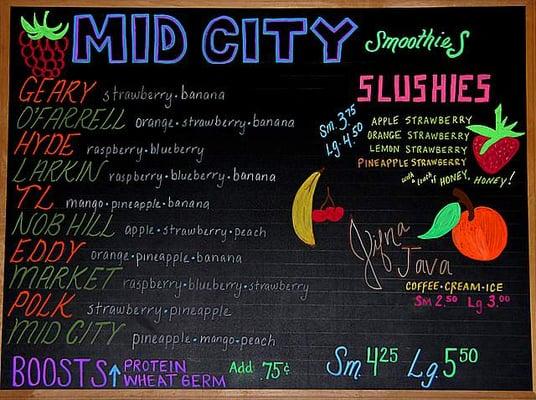 MID CITY Smoothies
GEARY strawberry • banana
O'FARRELL orange • strawberry • banana
HYDE raspberry • blueberry
LARKIN raspberry • blueberry • banana
TL mango • pineapple • banana
NOB HILL apple • strawberry • peach
EDDY orange • pineapple • banana
MARKET raspberry • blueberry • strawberry
POLK strawberry • pineapple
MID CITY pineapple • mango • peach
BOOSTS↑ PROTEIN
WHEAT GERM
Add .75¢
Sm. 4.25 Lg. 5.50
SLUSHIES
Sm. 3.75
Lg. 4.50
APPLE STRAWBERRY
ORANGE STRAWBERRY
LEMON STRAWBERRY
PINEAPPLE STRAWBERRY
with a touch of HONEY, HONEY!
Java
COFFEE • CREAM • ICE
Sm 2.50 Lg 3.00